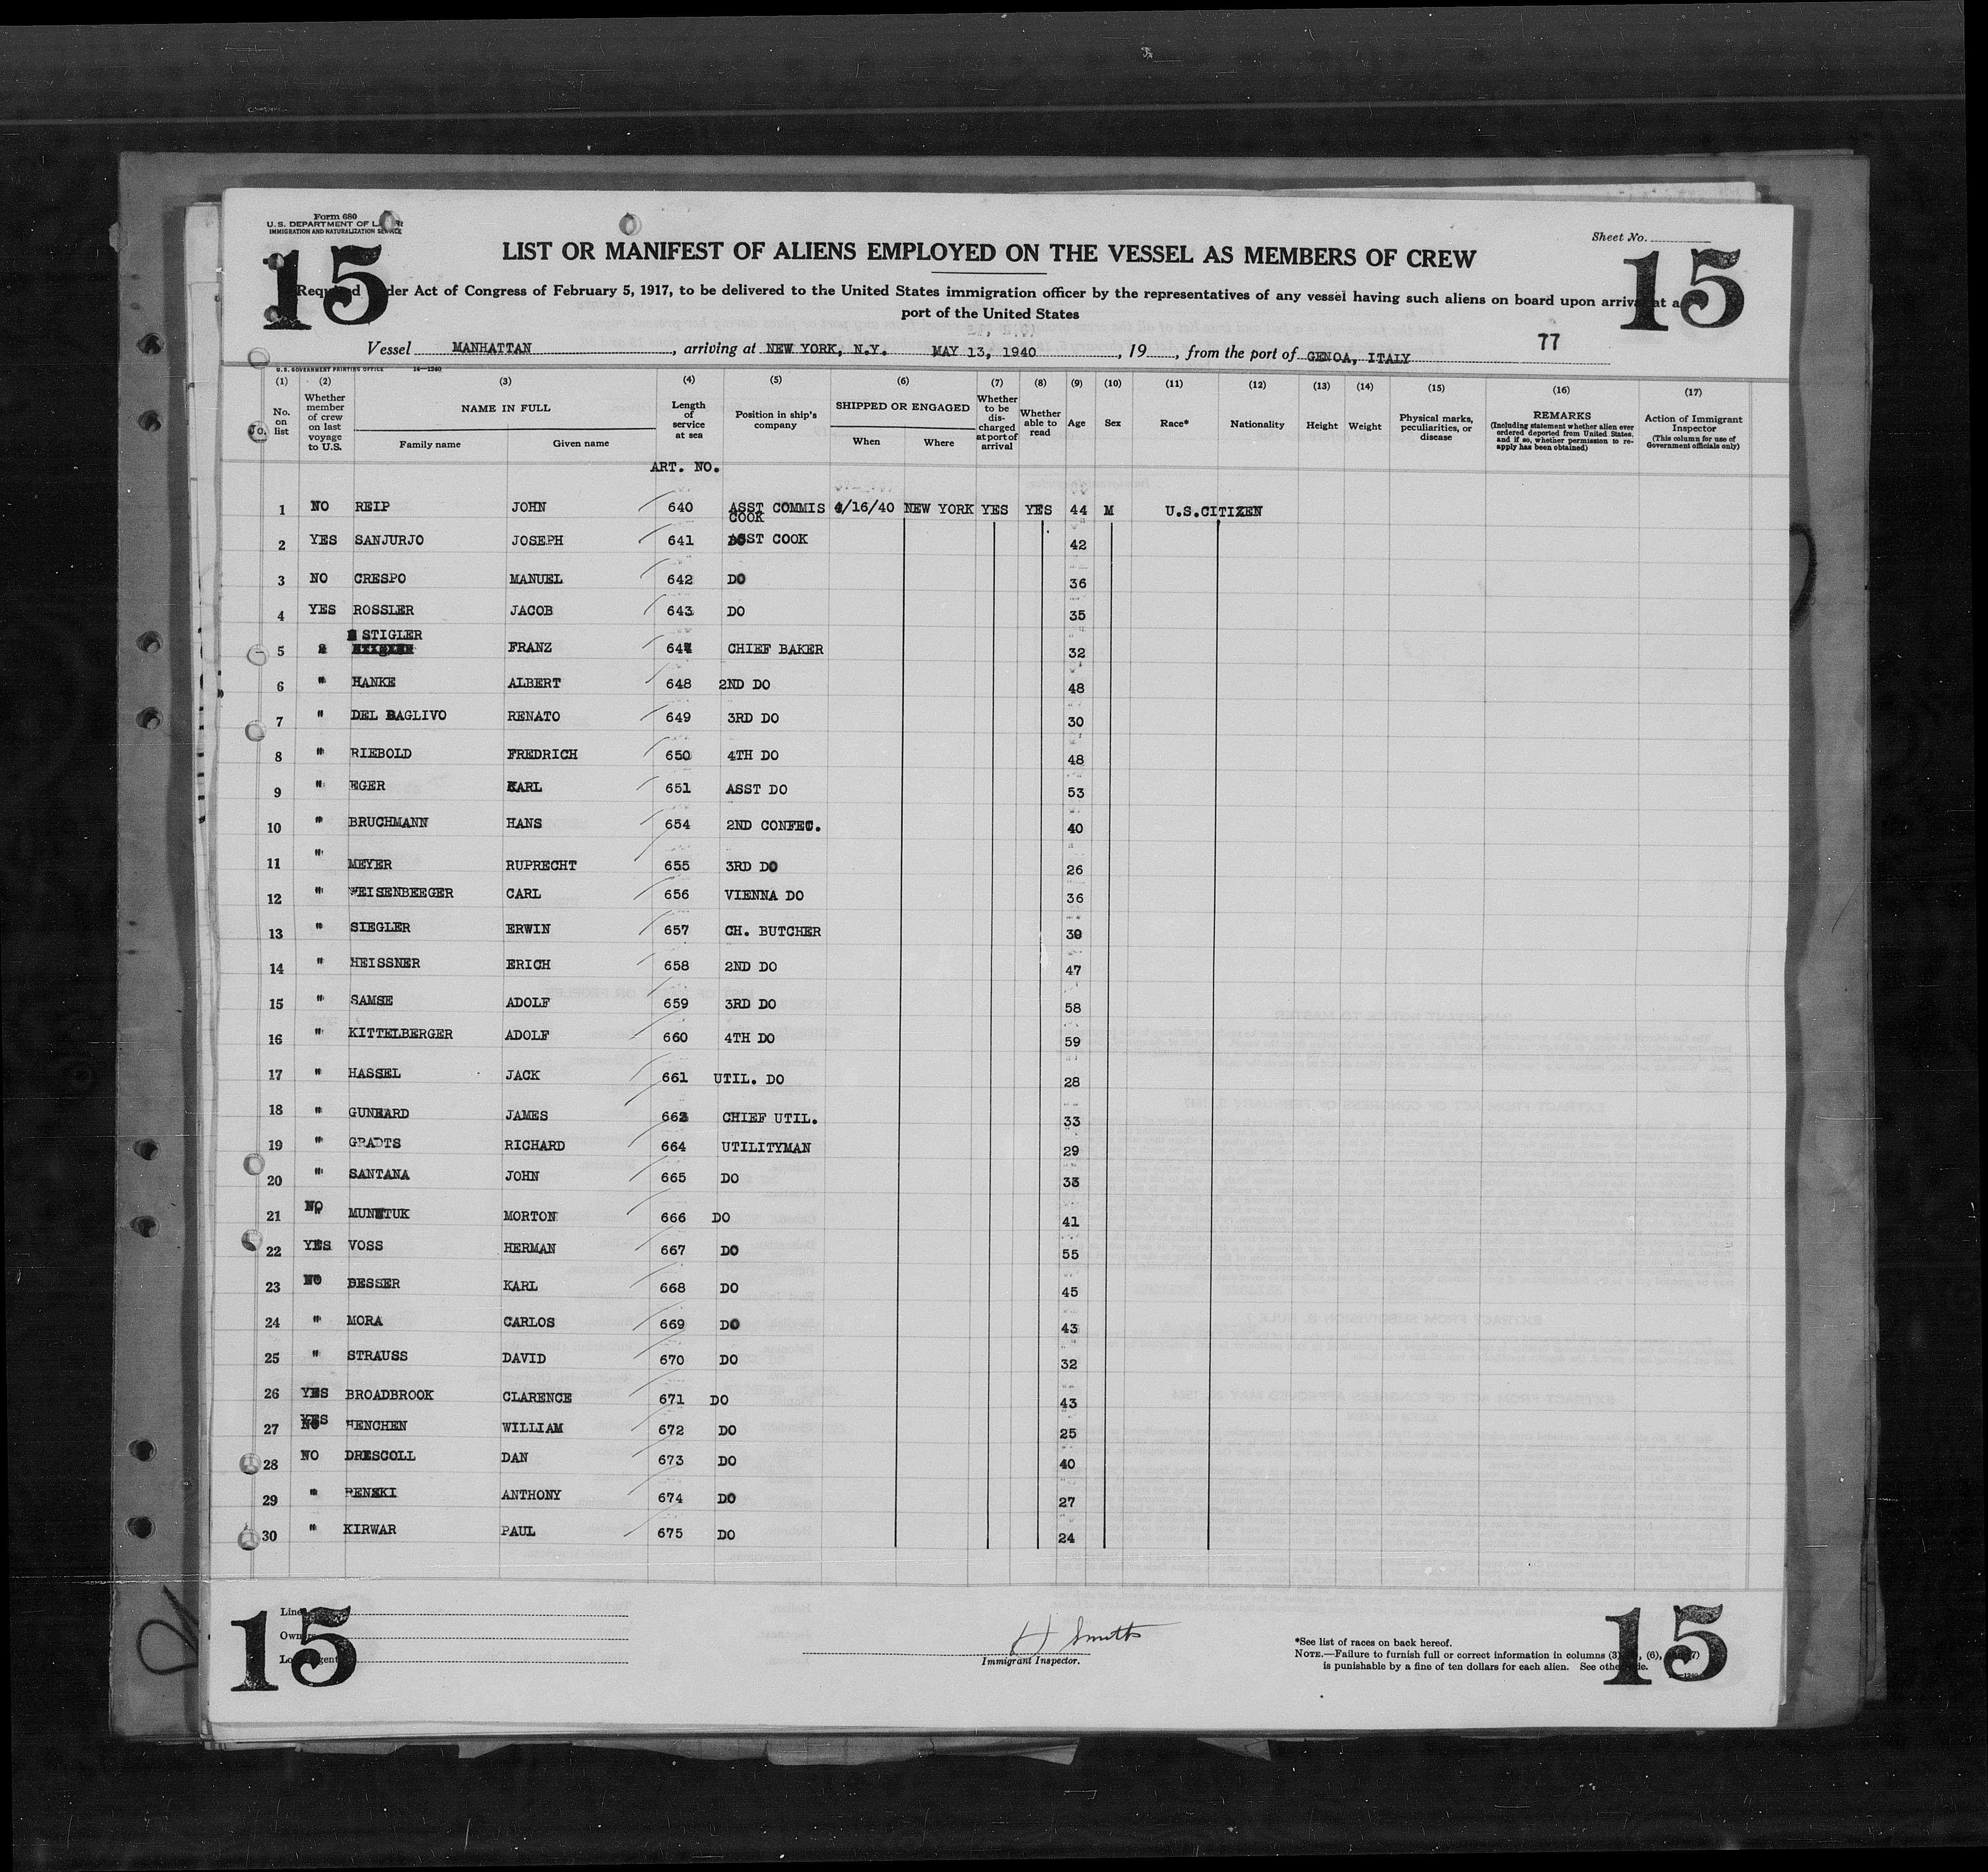 Form 680
U. S. DEPARTMENT OF
IMMIGRATION AND NATURALIZATION SERVICE
15
15
Sheet No.
LIST OR MANIFEST OF ALIENS EMPLOYED ON THE VESSEL AS MEMBERS OF CREW
Required under Act of Congress of February 5, 1917, to be delivered to the United States immigration officer by the representatives of any vessel having such aliens on board upon arrival at a
port of the United States
Vessel MANHATTAN, arriving at NEW YORK, N.Y. MAY 13, 1940, 19, from the port of GENOA, ITALY
77
U. S. GOVERNMENT PRINTING OFFICE 14—1240
(1) (2) (3) (4) (5) (6) (7) (8) (9) (10) (11) (12) (13) (14) (15) (16) (17)
No. on list
Whether member of crew on last voyage to U.S.
NAME IN FULL
Family name
Given name
Length of service at sea
Position in ship's company
SHIPPED OR ENGAGED
When
Where
Whether to be discharged at port of arrival
Whether able to read
Age
Sex
Race*
Nationality
Height
Weight
Physical marks, peculiarities, or disease
REMARKS
(Including statement whether alien ever ordered deported from United States, and if so, whether permission to reapply has been obtained)
Action of Immigrant Inspector
(This column for use of Government officials only)
ART. NO.
1 NO REIP JOHN 640 ASST COMMIS COOK 4/16/40 NEW YORK YES YES 44 M U.S.CITIZEN
2 YES SANJURJO JOSEPH 641 ASST COOK 42
3 NO CRESPO MANUEL 642 DO 36
4 YES ROSSLER JACOB 643 DO 35
5 STIGLER FRANZ 647 CHIEF BAKER 32
6 " HANKE ALBERT 648 2ND DO 48
7 " DEL BAGLIVO RENATO 649 3RD DO 30
8 " RIEBOLD FREDRICH 650 4TH DO 48
9 " EGER KARL 651 ASST DO 53
10 " BRUCHMANN HANS 654 2ND CONFEC. 40
11 " MEYER RUPRECHT 655 3RD DO 26
12 " WEISENBEEGER CARL 656 VIENNA DO 36
13 " SIEGLER ERWIN 657 CH. BUTCHER 30
14 " HEISSNER ERICH 658 2ND DO 47
15 " SAMSE ADOLF 659 3RD DO 58
16 " KITTELBERGER ADOLF 660 4TH DO 59
17 " HASSEL JACK 661 UTIL. DO 28
18 " GUNHARD JAMES 663 CHIEF UTIL. 33
19 " GRADTS RICHARD 664 UTILITYMAN 29
20 " SANTANA JOHN 665 DO 33
21 NO MUNTUK MORTON 666 DO 41
22 YES VOSS HERMAN 667 DO 55
23 NO BESSER KARL 668 DO 45
24 " MORA CARLOS 669 DO 43
25 " STRAUSS DAVID 670 DO 32
26 YES BROADBROOK CLARENCE 671 DO 43
27 YES HENCHEN WILLIAM 672 DO 25
28 NO DRESCOLL DAN 673 DO 40
29 " RENSKI ANTHONY 674 DO 27
30 " KIRWAR PAUL 675 DO 24
15
Line
Owners
Local Agents
H Smith
Immigrant Inspector.
*See list of races on back hereof.
NOTE.—Failure to furnish full or correct information in columns (3), (6), (7)
is punishable by a fine of ten dollars for each alien. See other side.
15